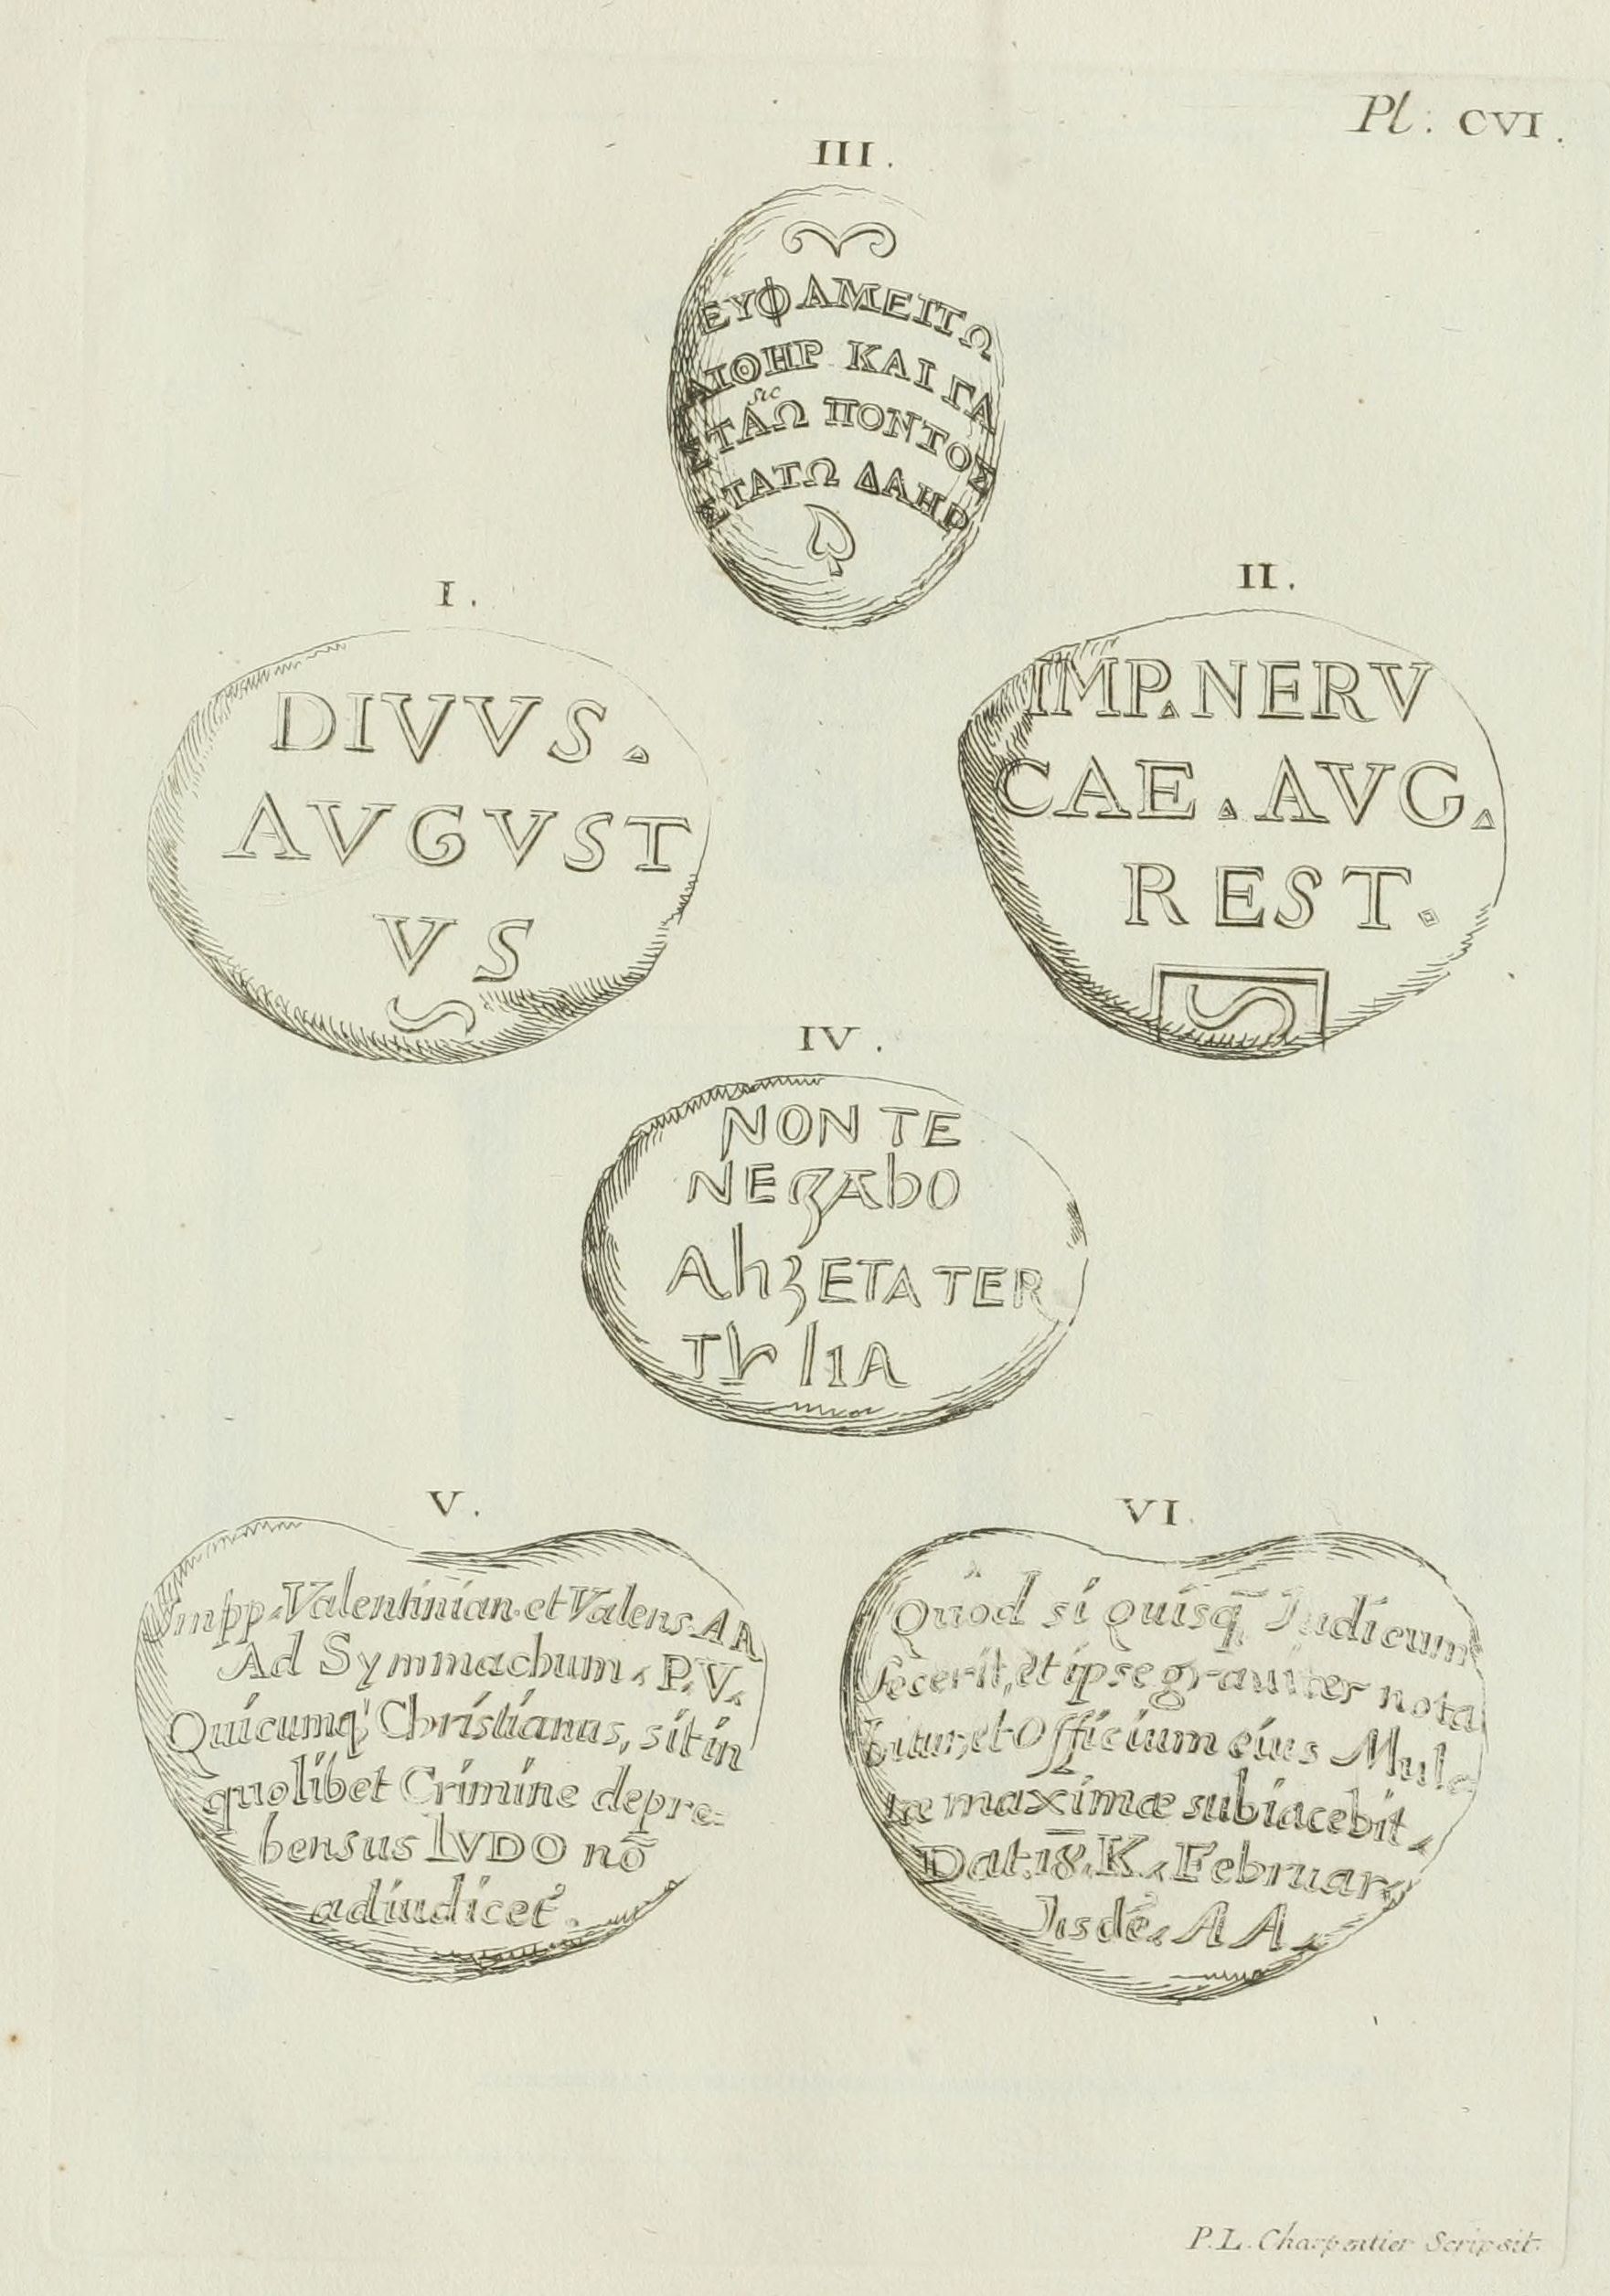 Pl: CVI.
III.
ΕΥΦΑΜΕΙΤΩ
ΑΙΘΗΡ ΚΑΙ ΓΑ
sic
ΣΤΑΩ ΠΟΝΤΟΣ
ΣΤΑΤΩ ΔΑΗΡ
I.
DIVVS.
AVGVST
VS
II.
IMP. NERV
CAE. AVG.
REST.
IV.
NON TE
NEGAbO
AhGETA TER
TV lIA
V.
Impp. Valentinian. et Valens. AA
Ad Symmachum. P. V.
Quicumq' Christianus, sit in
quolibet Crimine depre=
hensus LVDO nõ
adiudicet'.
VI.
Quod si quisq̄ Judicum
fecerit, et ipse grauiter nota
bitur, et Officium eius Mulc
tæ maximæ subiacebit.
Dat. 18. K. Februar.
Jisdē. AA.
P. L. Charpentier Scripsit.